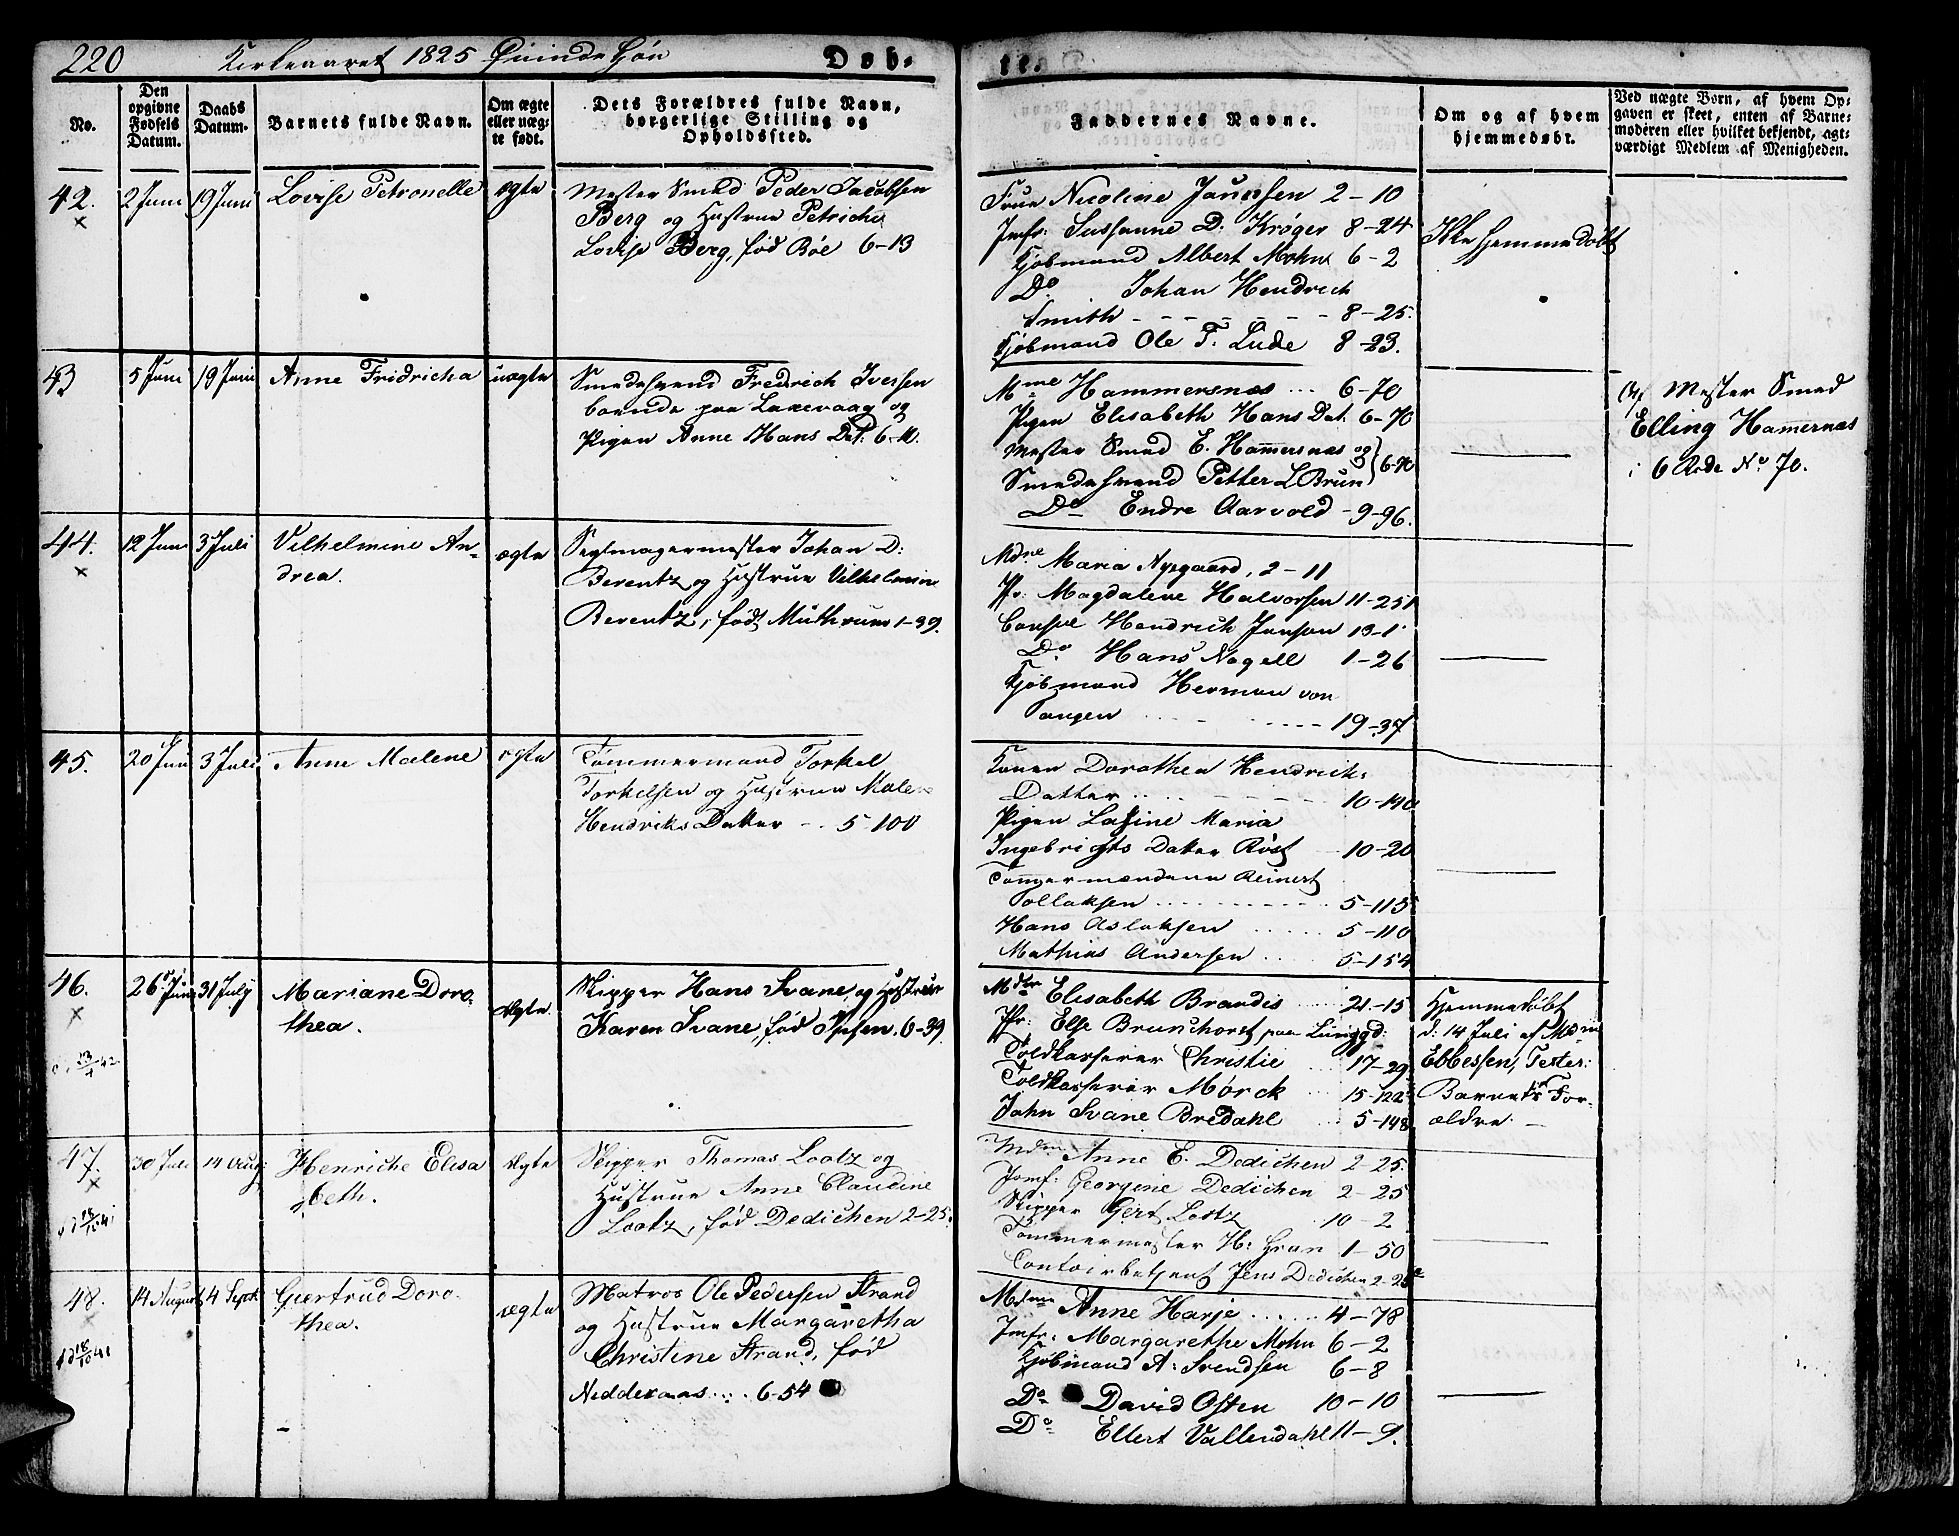 220 Kirkeaaret 1825 Qvindekjön Döb-
te.
No.
Den opgivne Fødsels Datum.
Daabs Datum.
Barnets fulde Navn.
Om ægte eller uægte født.
Dets Forældres fulde Navn, borgerlige Stilling og Opholdssted.
Faddernes Navne.
Om og af hvem hjemmedøbt.
Ved uægte Børn, af hvem Opgaven er skeet, enten af Barnemoderen eller hvilket bekjendt, agtværdigt Medlem af Menigheden.
42. 2 Juni 19 Juni Lovise Petronelle ægte
Mester Smed Peder Jacobsen
Berg og Hustrue Petriche
Lovise Berg, född Böe 6-13
Frue Nicoline Janssen 2-10
Jmfr: Sussanne D. Kröger 8-24
Kjöbmand Albert Mohn 6-2
Do Johan Hendrich
Smith - - - - - - 8-25.
Kjöbmand Ole T. Lude 8-23.
Ikke hjemmedöbt
43 5 Juni 19 Juni Anne Fridricha uægte
Smedesvend Fredrich Iversen
boende paa Laxevaag og
Pigen Anne Hans Dat:
Mme Hammersnæs ... 6-70
Pigen Elisabeth Hans Dat: 6-70
Mester Smed E. Hammersnæs og
Smedesvend Petter L Brun
Do Endre Aarvold - 9-96.
Af Mester Smed
Elling Hamernæs
i 6 Rode No 70.
44. 12 Juni 3 Juli Vilhelmine An-
drea. ægte
Seglmagermester Johan D:
Berentz og Hustrue Vilhelmin
Berentz, född 1-39.
Mdme Maria Nygaard, 2-11
Jfr: Magdalene Halvorsen 11-251
Consul Hendrich Janson 13-1
Do Hans Nagell 1-26
Kjöbmand Herman von
Tangen - - - - - 19-37
45. 20 Juni 3 Juli Anne Malene ægte
Tömmermand Torkel
Torkelsen og Hustrue Malene
Hendriks Datter - . 5-100
Konen Dorothea Hendrich:
Datter - - - - 10-140
Pigen Lasine Maria
Ingebrigts Datter Röst 10-20
Tömmermændene Reinert
Tollaksen . . . . . . 5-115
Hans Aslaksen . . . . . 5-110
Mathias Andersen . . . . 5-154
46. 26 Juni 31 July Mariane Doro-
thea. ægte
Skipper Hans Svane, og Hustrue
Karen Svane, född Ipsen. 6-39.
Mdme Elisabeth Brandis ... 21-15
Jfr: Else Brunchorst paa Lungegd:
Toldkasserer Christie ... 17-29
Toldkasserer Mörck ... 15-122
John Svane Bredahl ... 5-148
Hjemmedöbt
d: 14 Juli af Mdme
Ebbesen, Tester:
Barnets For-
ældre. -
47. 30 Juli 14 Aug: Henriche Elisa
beth. ægte
Skipper Thomas Lootz og
Hustrue Anne Claudine
Lootz, född Dedichen 2-25.
Mdme Anne E. Dedichen 2-25.
Jomf: Georgene Dedichen 2-25
Skipper Gert Lootz 10-2
Tömmermester H: Gran 1-50
Contoirbetjent Jens Dedichen 2-25
48. 14 August 4 Septb Gjertrud Doro-
thea. ægte
Matros Ole Pedersen Strand
og Hustrue Margaretha
Christine Strand, född
Neddernæs .... 6-54
Mdme Anne Harje ...... 4-78
Jmfr: Margarethe Mohn 6-2
Kjöbmand A: Svendsen 6-8
Do David Osten 10-10
Do Ellert Vallendahl 11-9.